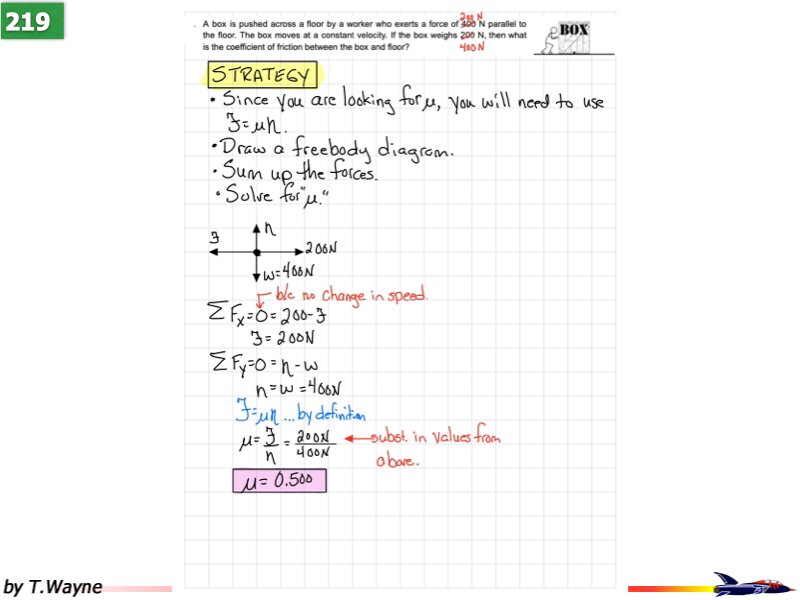 219
200 N
. A box is pushed across a floor by a worker who exerts a force of 400 N parallel to
the floor. The box moves at a constant velocity. If the box weighs 200 N, then what
400 N
is the coefficient of friction between the box and floor?
BOX
STRATEGY
• Since you are looking for μ, you will need to use
F=μn.
• Draw a freebody diagram.
• Sum up the forces.
• Solve for "μ."
n
F
200N
w=400N
b/c no change in speed.
ΣFx=0=200-F
F=200N
ΣFy=0=n-w
n=w=400N
F=μn ... by definition
μ=F/n=200N/400N
subst. in values from
above.
μ=0.500
by T.Wayne